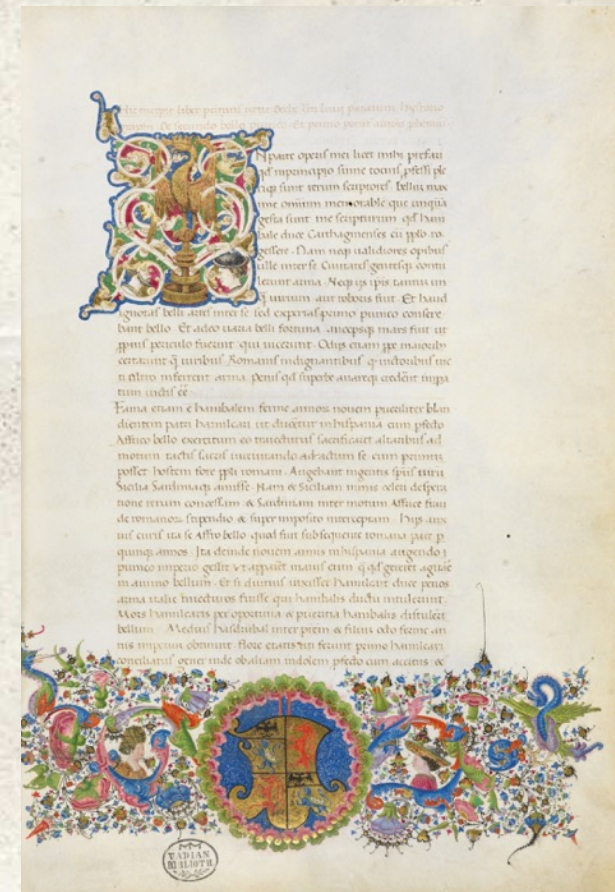 N parte operis mei licet mihi prefari
qd in principio summe tocius pfessi ple
riq sunt rerum scriptores. bellum max
ime omnium memorabile que unquā
gesta sunt me scripturum qd hani
bale duce Carthaginenses cū pplo ro
gessere. Nam neq ualidiores opibus
ulle inter se Ciuitates gentesq contu
lerunt arma. Neq ijs ipis tantum um
q uirium aut roboris fuit. Et haud
ignotas belli artes inter se sed expertas primo punico consere
bant bello. Et adeo uaria belli fortuna ancepsq mars fuit ut
ppius periculo fuerint qui uicerunt. Odijs etiam ppe maiorib
certarunt q uiribus Romanis indignantibus q uictoribus uic
ti ultro inferrent arma. Penis qd superbe auareq credent impa
tum uictis eē
Fama etiam ē hanibalem ferme annorum nouem pueriliter blan
dientem patri hamilcari ut duceret in hispania cum pfecto
Affrico bello exercitum eo traiecturus sacrificaret altaribus ad
motum tactis sacris iureiurando adactum se cum primum
posset hostem fore pplo romano. Angebant ingentis spūs uirū
Sicilia Sardiniaq amisse. Nam & Siciliam nimis celeri despera
tione rerum concessam & Sardiniam inter motum Affrice frau
de romanorum stipendio & super imposito interceptam. Hijs anx
ius curis ita se Affro bello quod fuit sub sequente romana pace p
quinq annos. Ita deinde nouem annis in hispania augendo
punico imperio gessit ut appareret maius eum q qd gereret agitare
in animo bellum. Et si diutius uixisset hamilcare duce penos
arma italie illaturos fuisse qui hanibalis ductu intulerunt.
Mors hamilcaris per oportuna & puericia hanibalis distulerunt
bellum. Medius hasdrubal inter patrem & filium octo ferme an
nis imperium obtinuit. flore etatis uti ferunt primo hamilcari
conciliatus gener inde ob aliam indolem pfecto cum accitus &
VADIAN
BIBLIOTH.